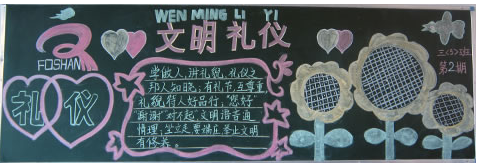 WEN MING LI YI
文明礼仪
FOSHAN
三(5)班
第2期
礼 仪
学做人,讲礼貌,礼仪之
邦人知晓;有礼节互尊重
礼貌待人好品行,"您好"
"谢谢"对不起,文明语言通
情理;坐立足
文明
有修养。